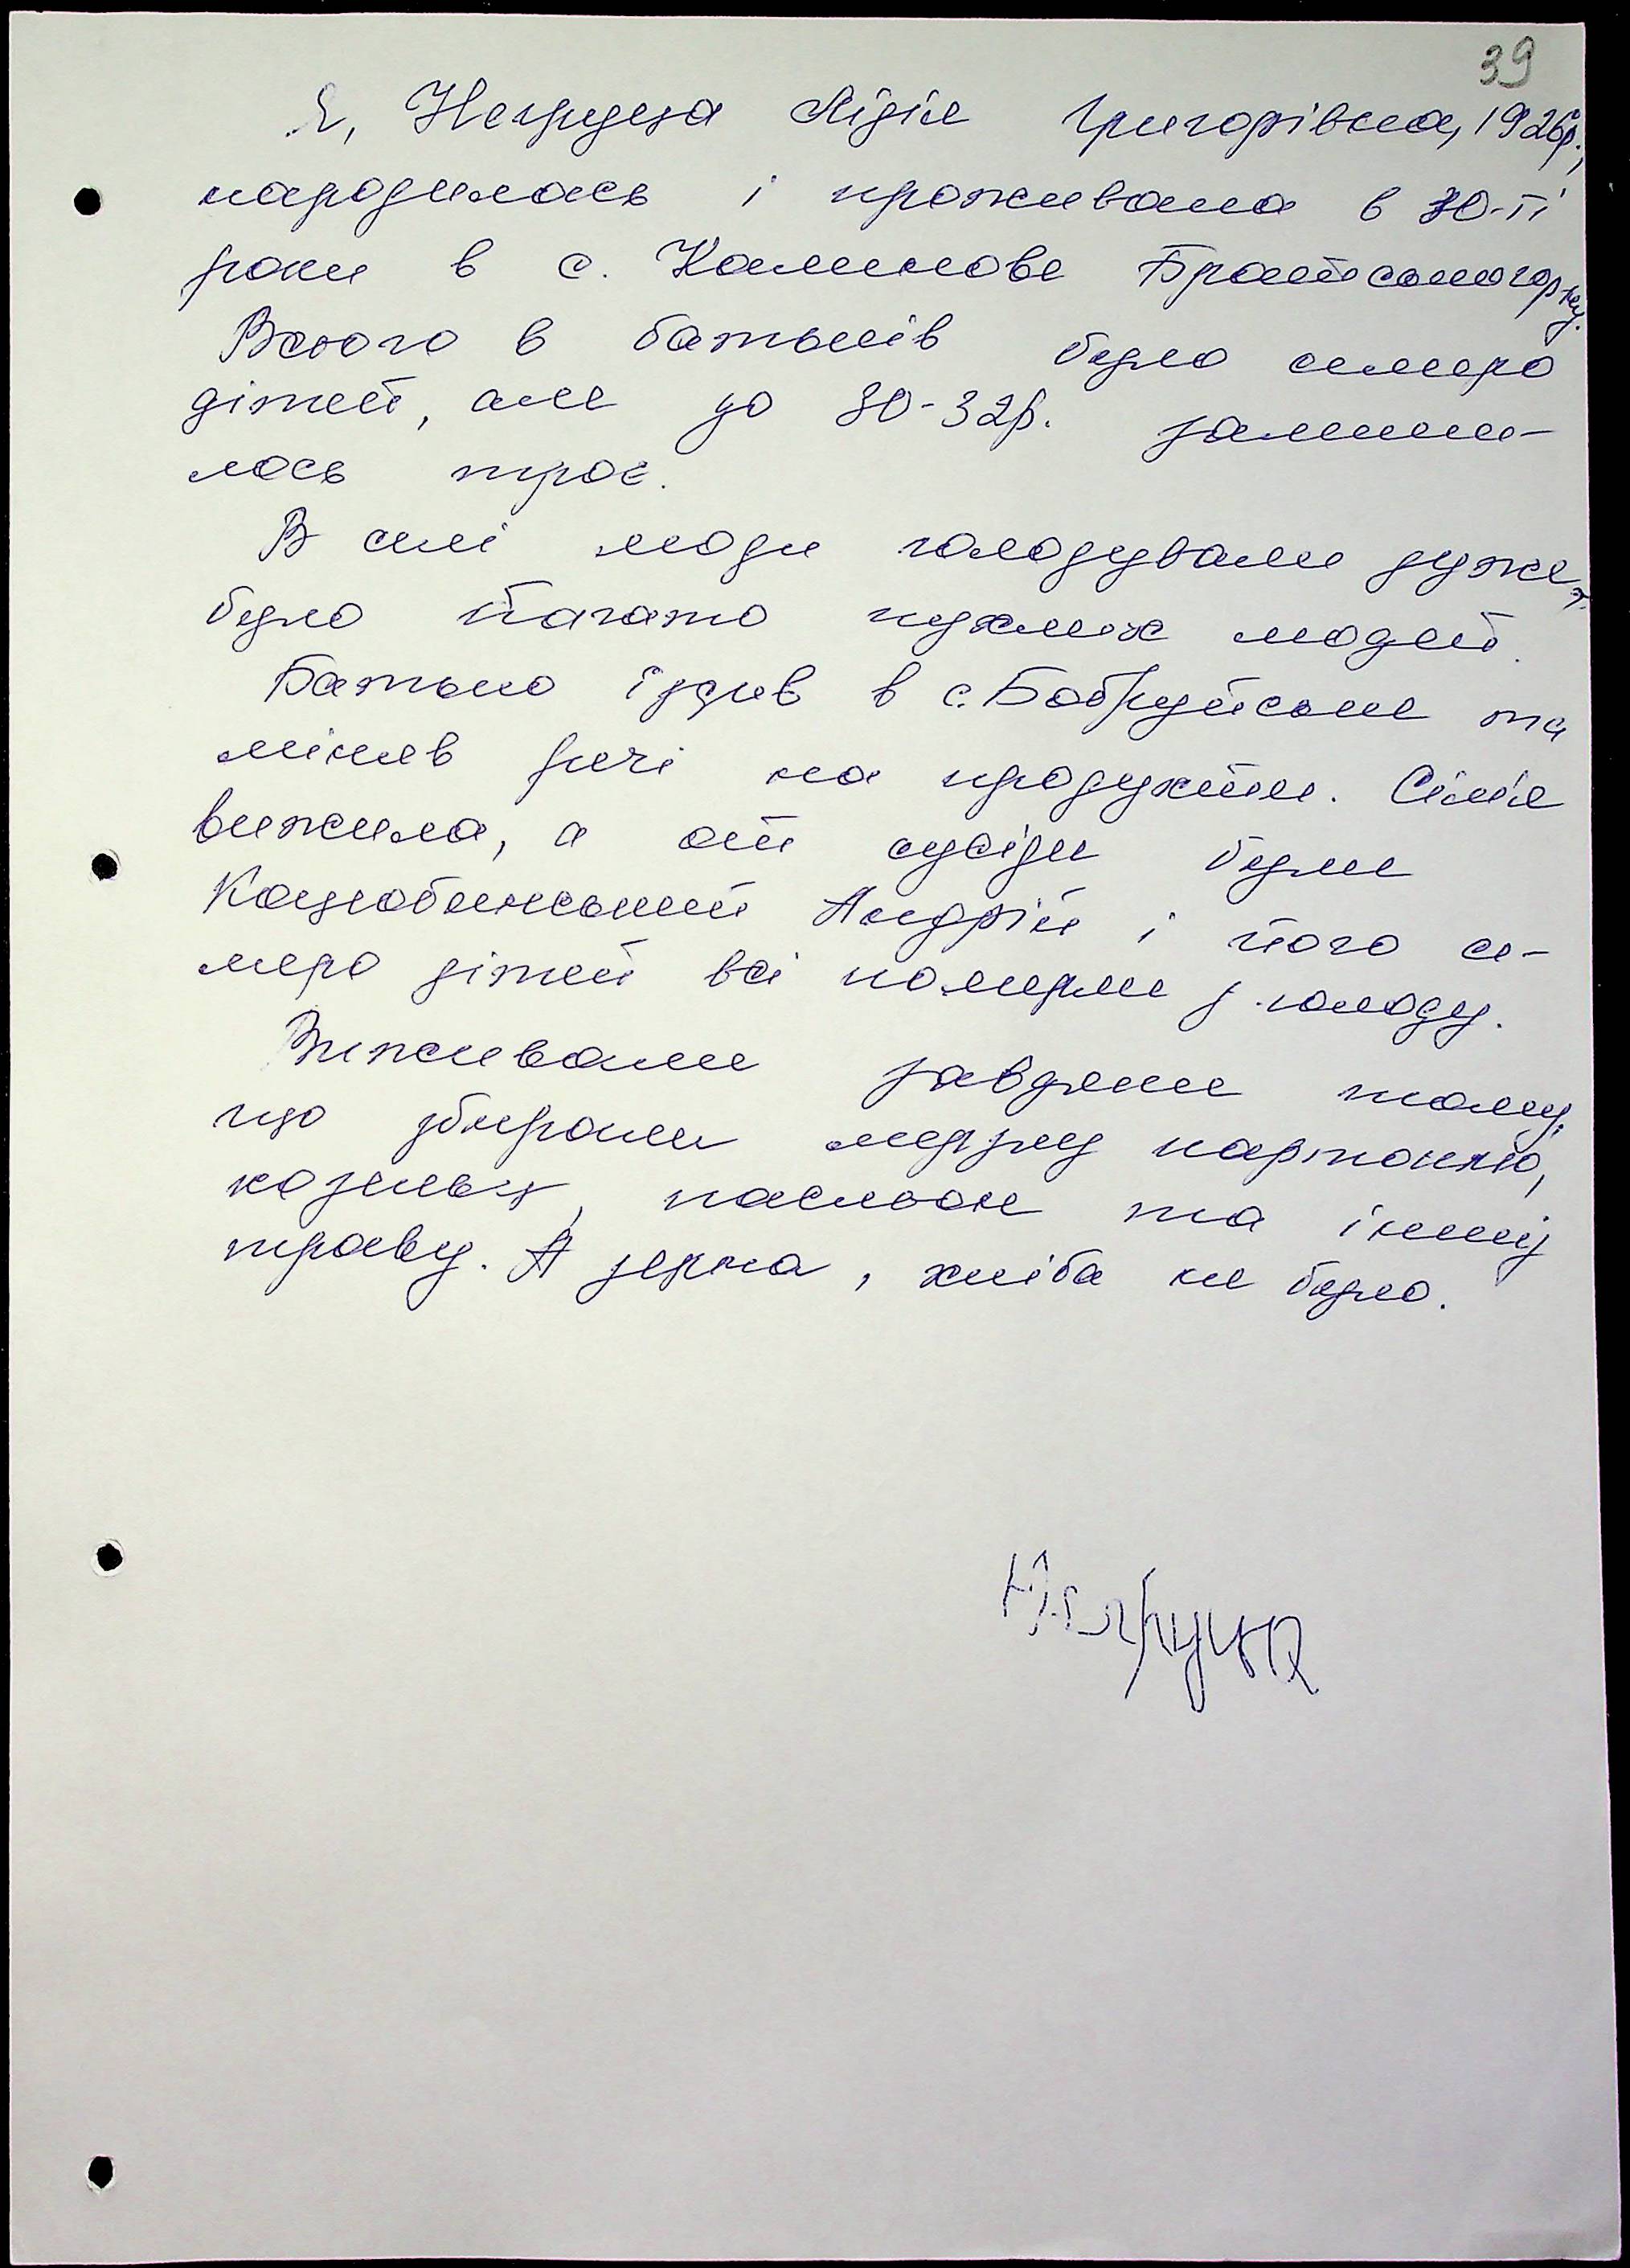 39
Я, Негруца Лідія Григорівна, 1926р.,
народилась і проживала в 30-ті
роки в с. Калинове Братського р-ну.
Всього в батьків було семеро
дітей, але до 30-32р. залиши-
лось троє.
В селі люди голодували дуже,
було багато пухлих людей.
Батько їздив в с. Бобруйське та
міняв речі на продукти. Сім'я
вижила, а от сусіди були
Коцюбинський Андрій і його се-
меро дітей всі померли з голоду.
Виживали завдяки тому,
що збирали мерзлу картоплю,
козельці, пасльон та іншу
траву. А зерна, хліба не було.
Негруца